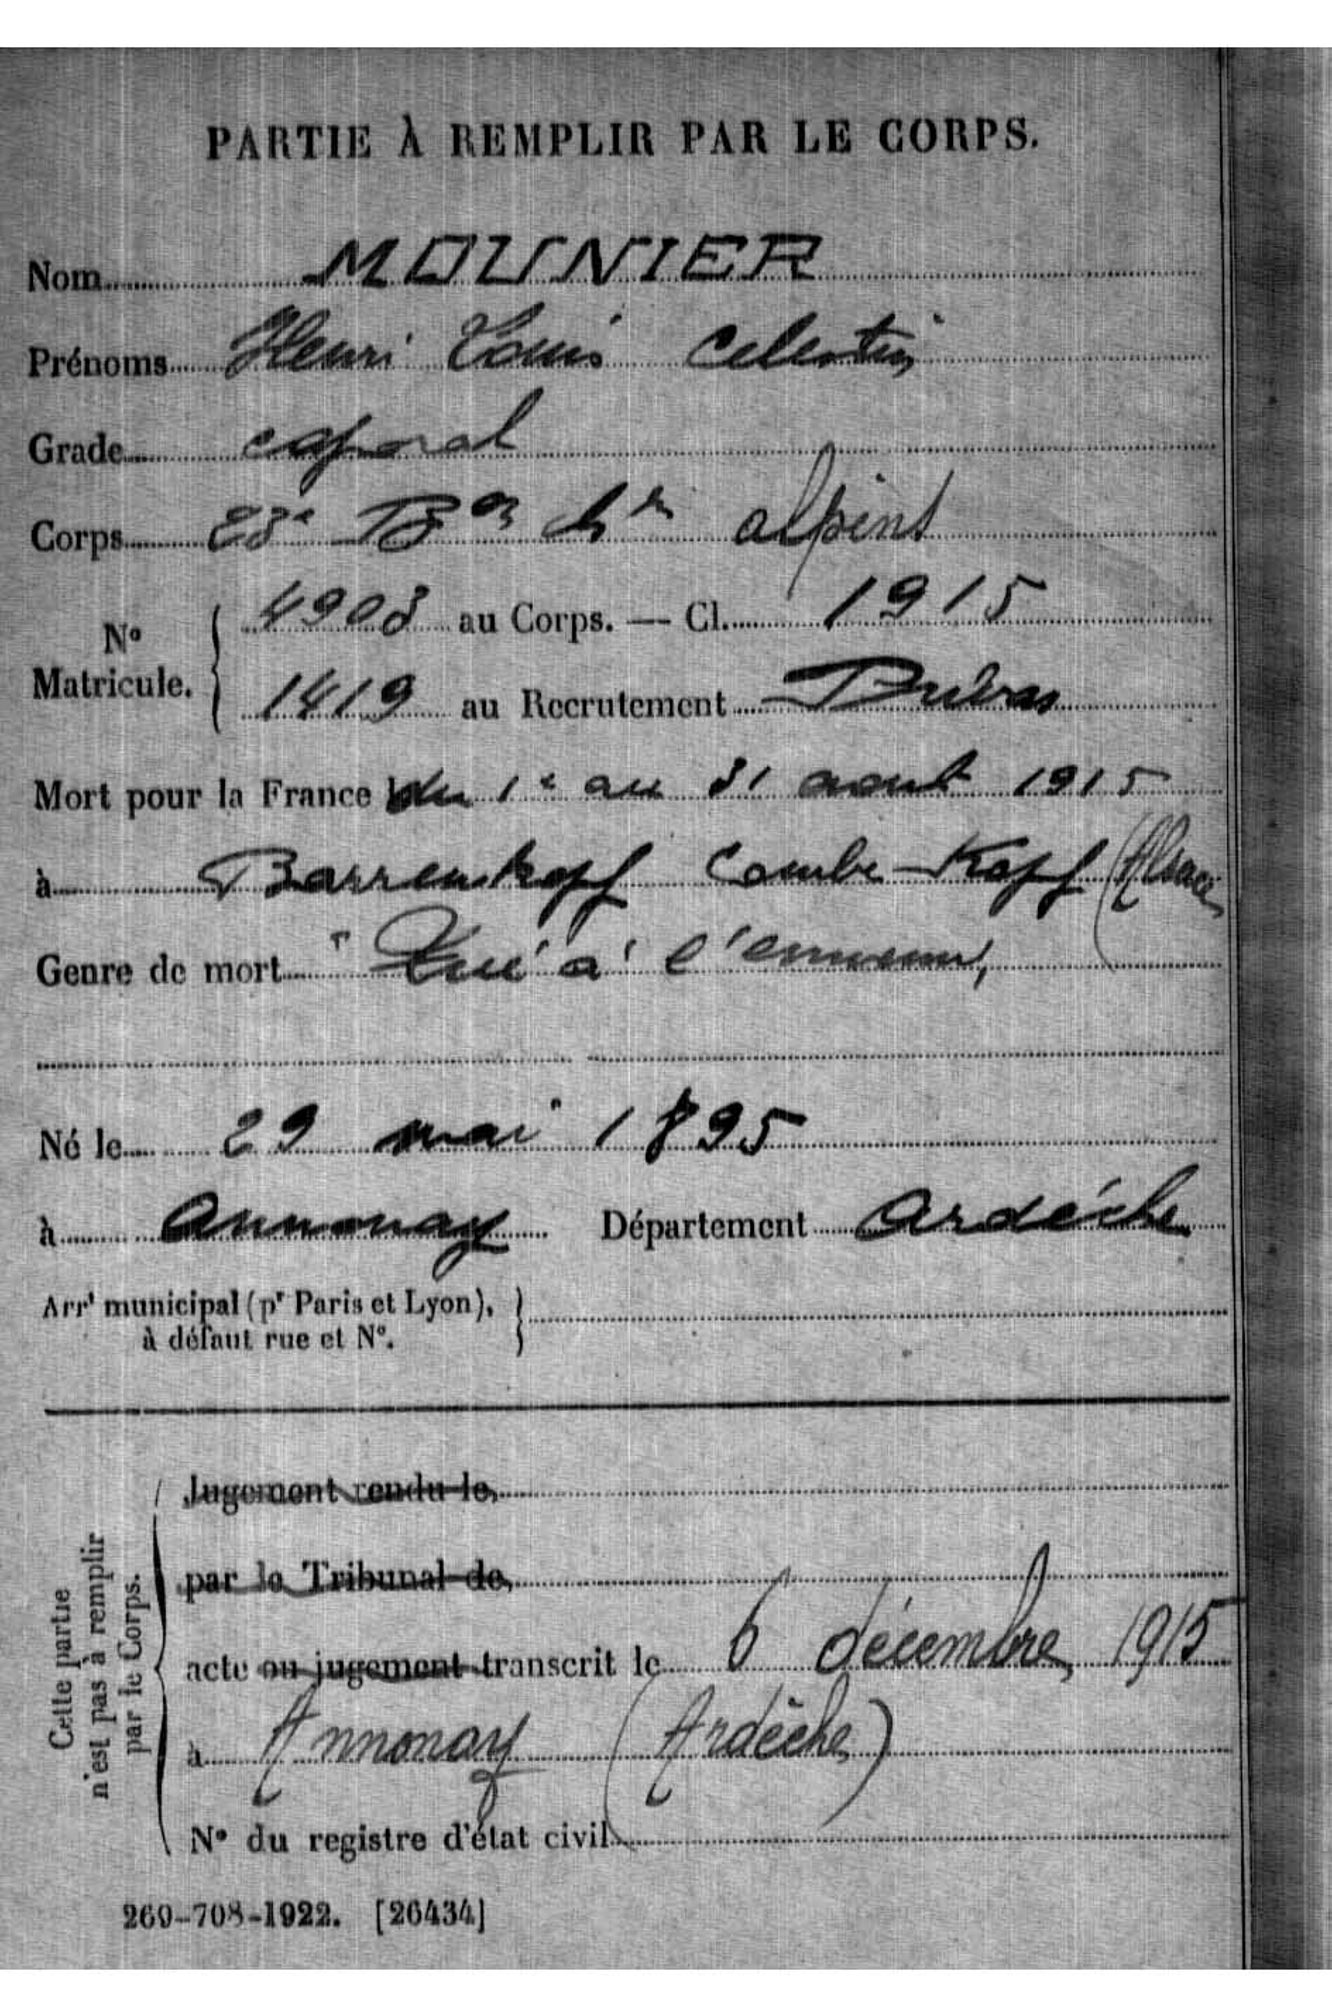 PARTIE À REMPLIR PAR LE CORPS.
Nom MOUNIER
Prénoms Henri Louis Celestin
Grade caporal
Corps 23e Bon Chr alpins
No Matricule. 4903 au Corps. — Cl. 1915
1419 au Recrutement Privas
Mort pour la France du 1e au 31 aout 1915
à Barrenkopf Combe-Kopf (Alsace
Genre de mort Tué à l'ennemi
Né le 29 mai 1895
à Annonay Département Ardéche
Arrt municipal (pr Paris et Lyon),
à défaut rue et No.
Cette partie
n'est pas à remplir
par le Corps.
Jugement rendu le
par le Tribunal de
acte ou jugement transcrit le 6 décembre 1915
à Annonay (Ardèche)
No du registre d'état civil
269-708-1922. [26434]